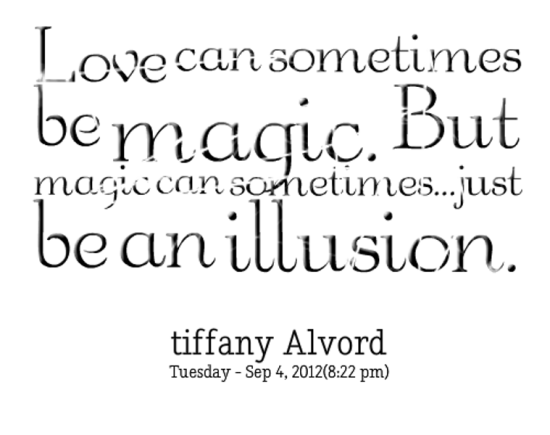 Love can sometimes
be magic. But
magic can sometimes...just
be an illusion.
tiffany Alvord
Tuesday - Sep 4, 2012(8:22 pm)